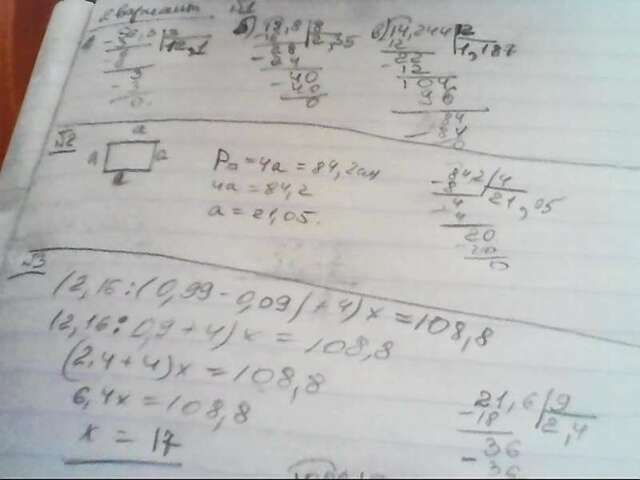 2 вариант. №1
б) 18,8 | 8
2,35
- 24
40
- 40
0
в) 14,244 | 12
12 1,187
22
- 12
104
96
84
- 84
0
№2
a
a a
a
Pₐ = 4a = 84,2 см
4a = 84,2
a = 21,05.
- 84,2 | 4
8 21,05
4
- 4
20
- 20
0
№3
(2,16 : (0,99 - 0,09) + 4) x = 108,8
(2,16 : 0,9 + 4) x = 108,8
(2,4 + 4) x = 108,8
6,4x = 108,8
x = 17
- 21,6 | 9
18 2,4
36
- 36